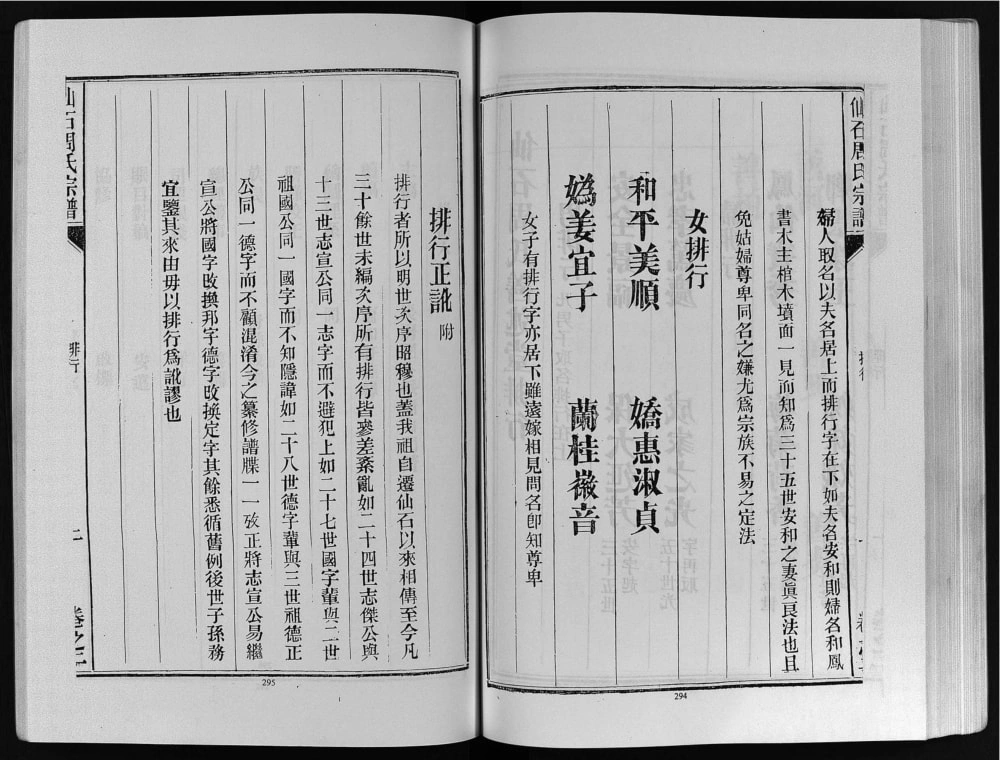 仙石周氏宗譜
婦人取名以夫名居上而排行字在下如夫名安和則婦名和鳳
書木主棺木墳面一見而知爲三十五世安和之妻眞良法也且
免姑婦尊卑同名之嫌尤爲宗族不易之定法
女排行
和平美順 嬌惠淑貞
嬀姜宜子 蘭桂薇音
女子有排行字亦居下雖遠嫁相見問名卽知尊卑
294
排行正訛 附
排行者所以明世次序昭穆也蓋我祖自遷仙石以來相傳至今凡
三十餘世未編次序所有排行皆參差紊亂如二十四世志傑公與
十三世志宣公同一志字而不避犯上如二十七世國字輩與二世
祖國公同一國字而不知隱諱如二十八世德字輩與三世祖德正
公同一德字而不顧混淆今之纂修譜牒一一攷正將志宣公易繼
宣公將國字改換邦字德字改換定字其餘悉循舊例後世子孫務
宜鑒其來由毋以排行爲訛謬也
仙石周氏宗譜
排行
二
卷之二
295